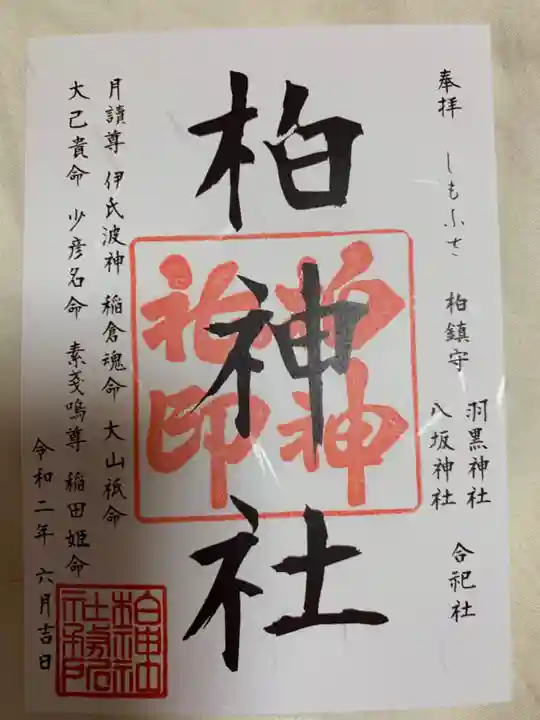 奉拝 しもふさ 柏鎮守 羽黒神社 八坂神社 合祀社
柏神社
柏神社印
月讀尊 伊氐波神 稲倉魂命 大山祇命
大己貴命 少彦名命 素戔嗚尊 稲田姫命
令和二年 六月吉日
柏神社社務所